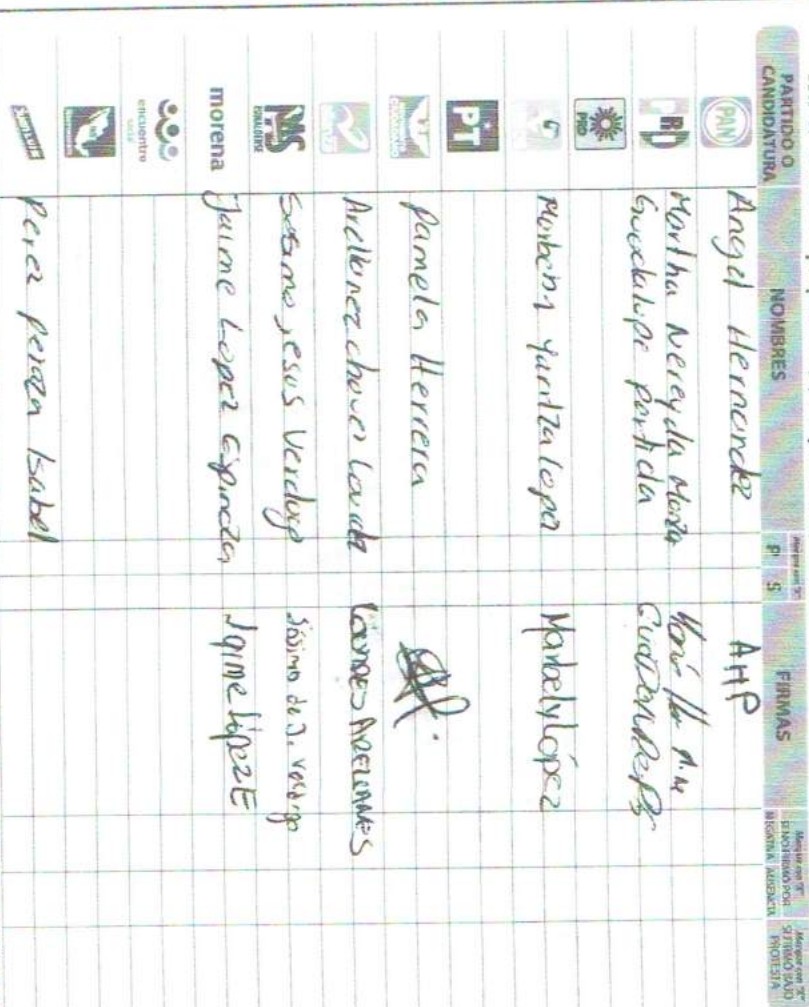 PARTIDO O
CANDIDATURA
NOMBRES
P S
FIRMAS
Marque con "X"
SI NO FIRMÓ POR
NEGATIVA AUSENCIA
Marque con "X"
SI FIRMÓ BAJO
PROTESTA
PAN
Angel Hernandez
AHP
PRI
Martha Nereyda
Guadalupe Partida
PRD
Marbeny Yaritza Lopez
Marbely López
PT
Pamela Herrera
Lourdes ARELLANES
PAS
SINALOENSE
Jesus Verdugo
morena
Jaime Lopez Espinoza
Jaime López E
encuentro
social
Perez Peraza Isabel